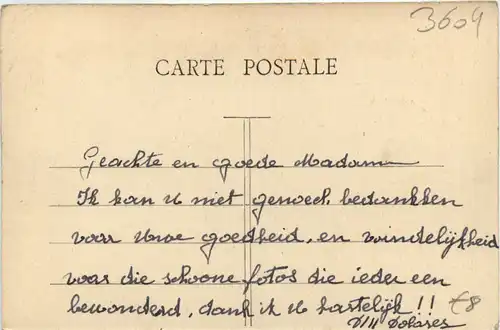 3604
CARTE POSTALE
Geachte en goede Madam
Ik kan U niet genoech bedankken
voor Uwe goedheid, en vrindelijkheid
voor die schoone fotos die ieder een
bewonderd, dank ik U hartelijk!!
€8